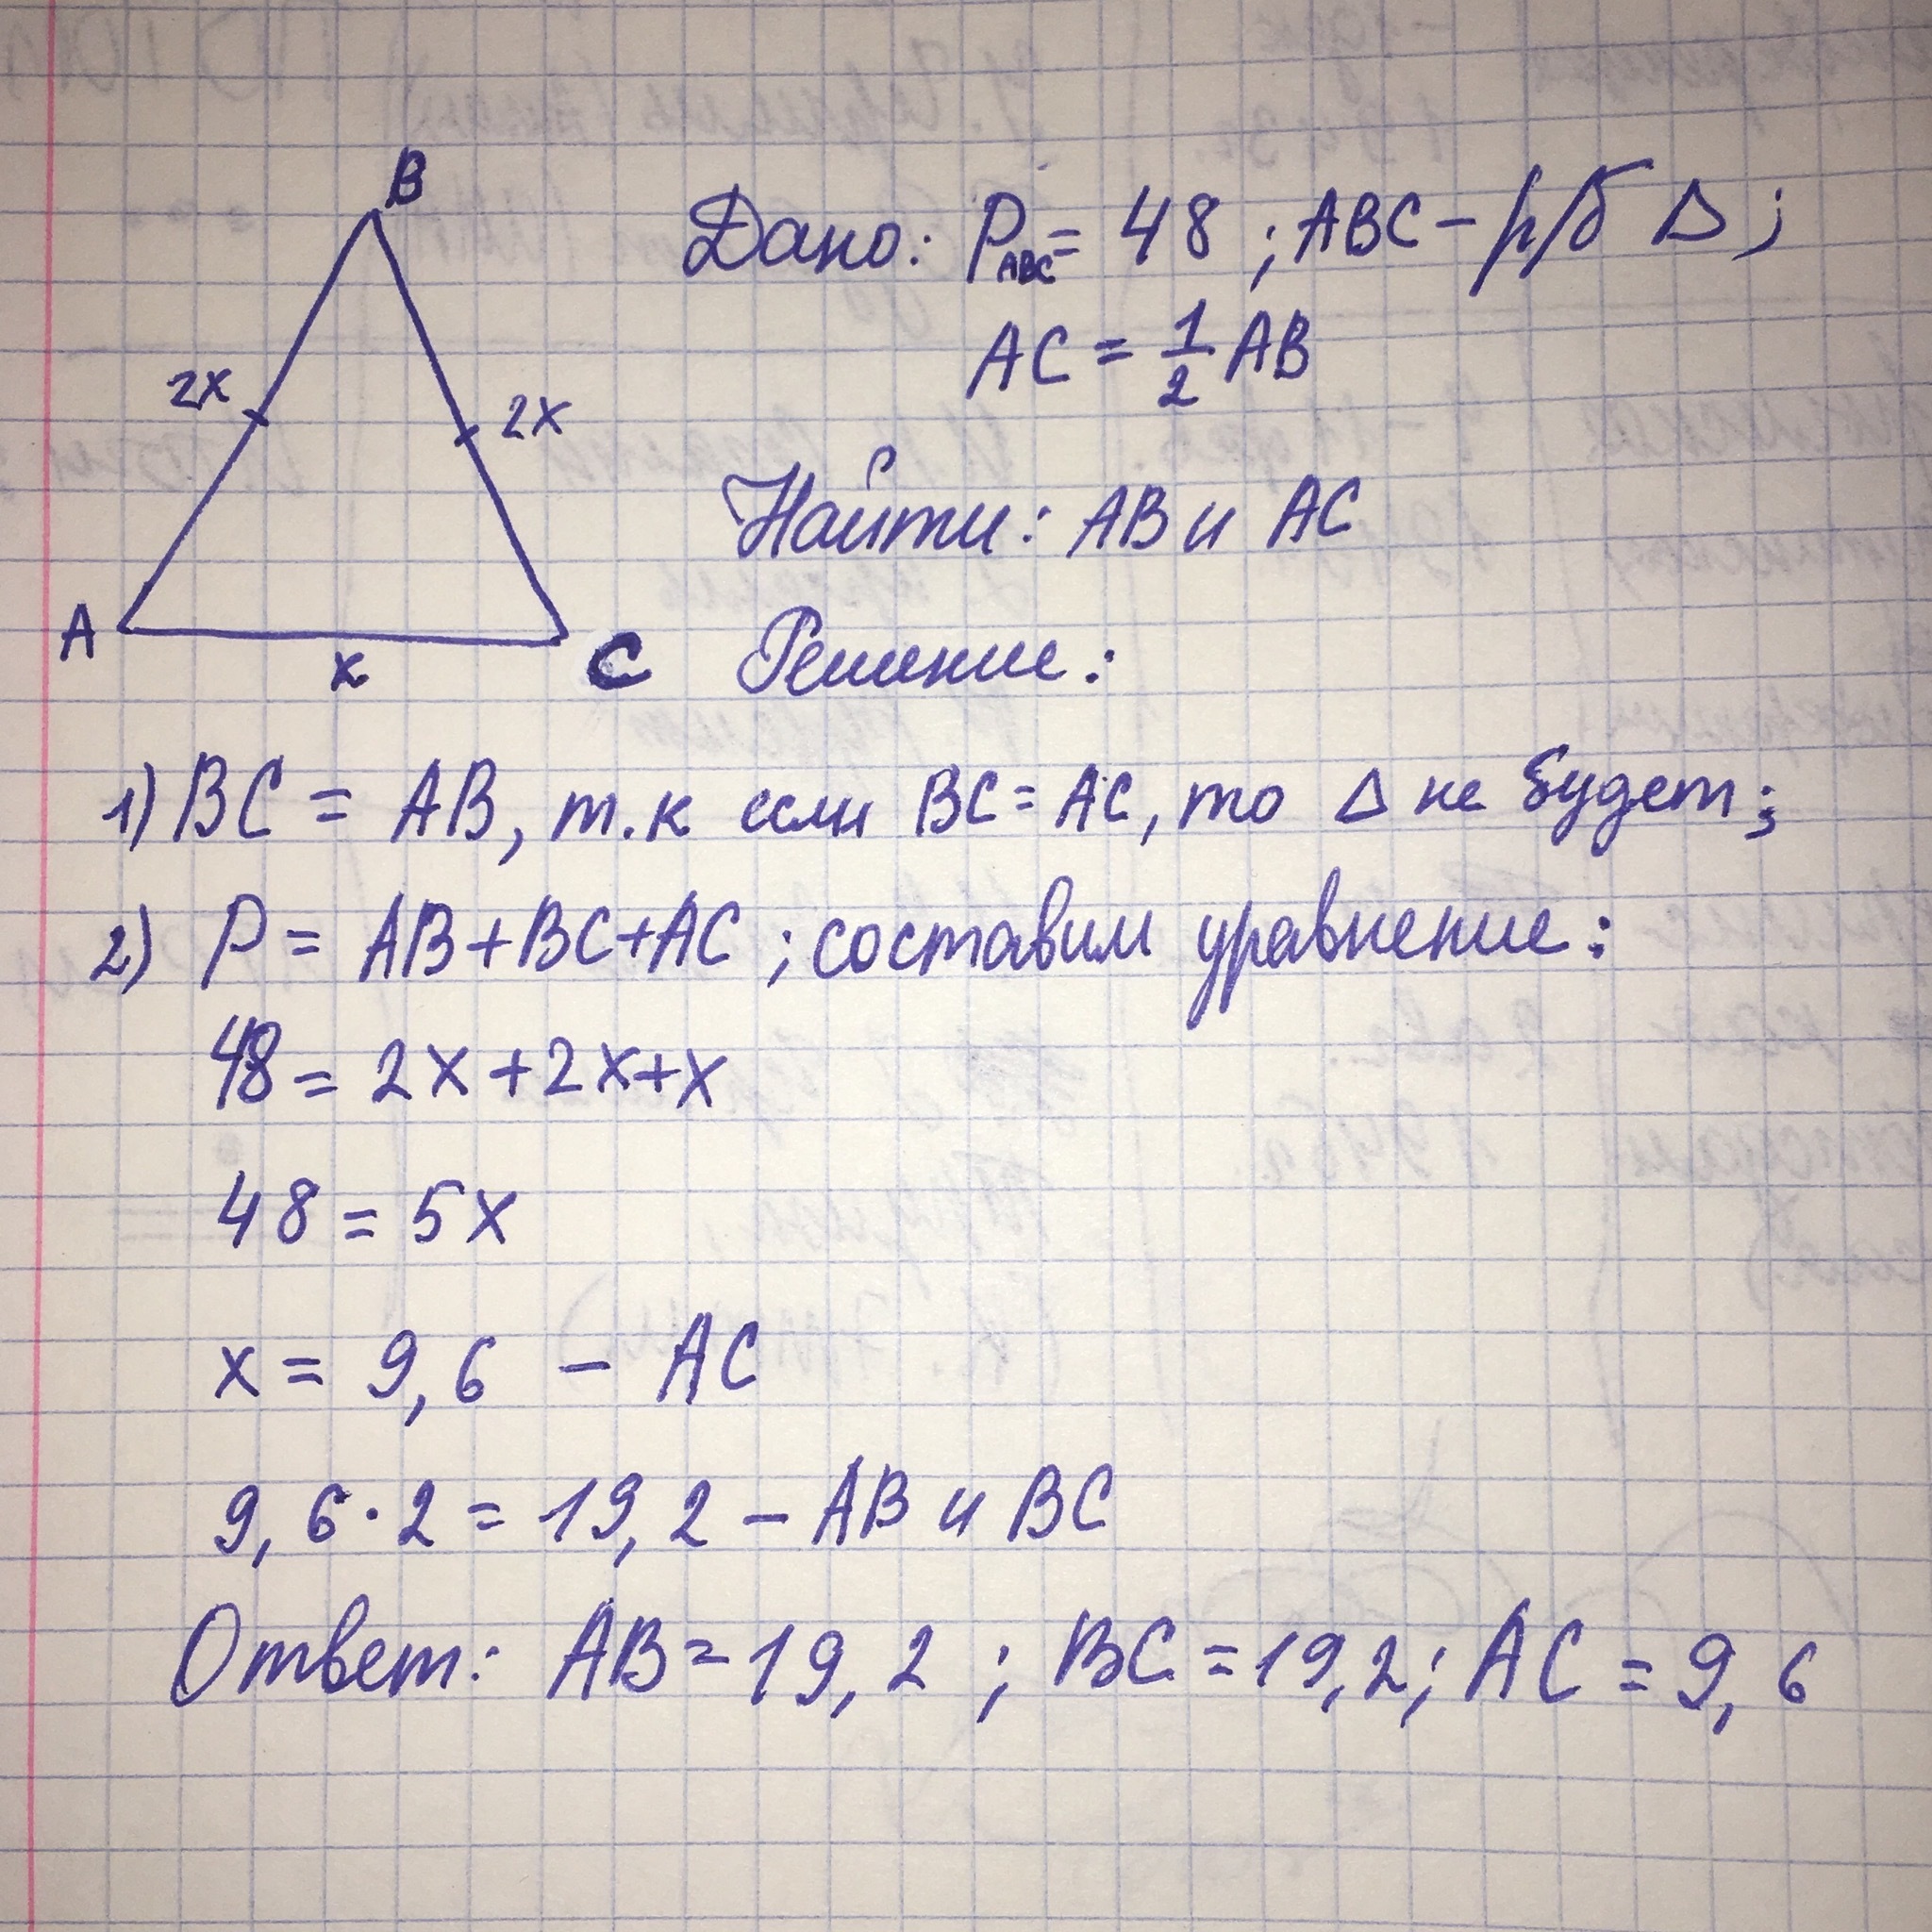 B
Дано: P_ABC = 48 ; ABC – р/б Δ ;
AC = 1/2 AB
2x 2x
Найти: AB и AC
A x C
Решение:
1) BC = AB, т.к если BC = AC, то Δ не будет;
2) P = AB+BC+AC ; составим уравнение:
48 = 2x+2x+x
48 = 5x
x = 9,6 – AC
9,6·2 = 19,2 – AB и BC
Ответ: AB = 19,2 ; BC = 19,2; AC = 9,6